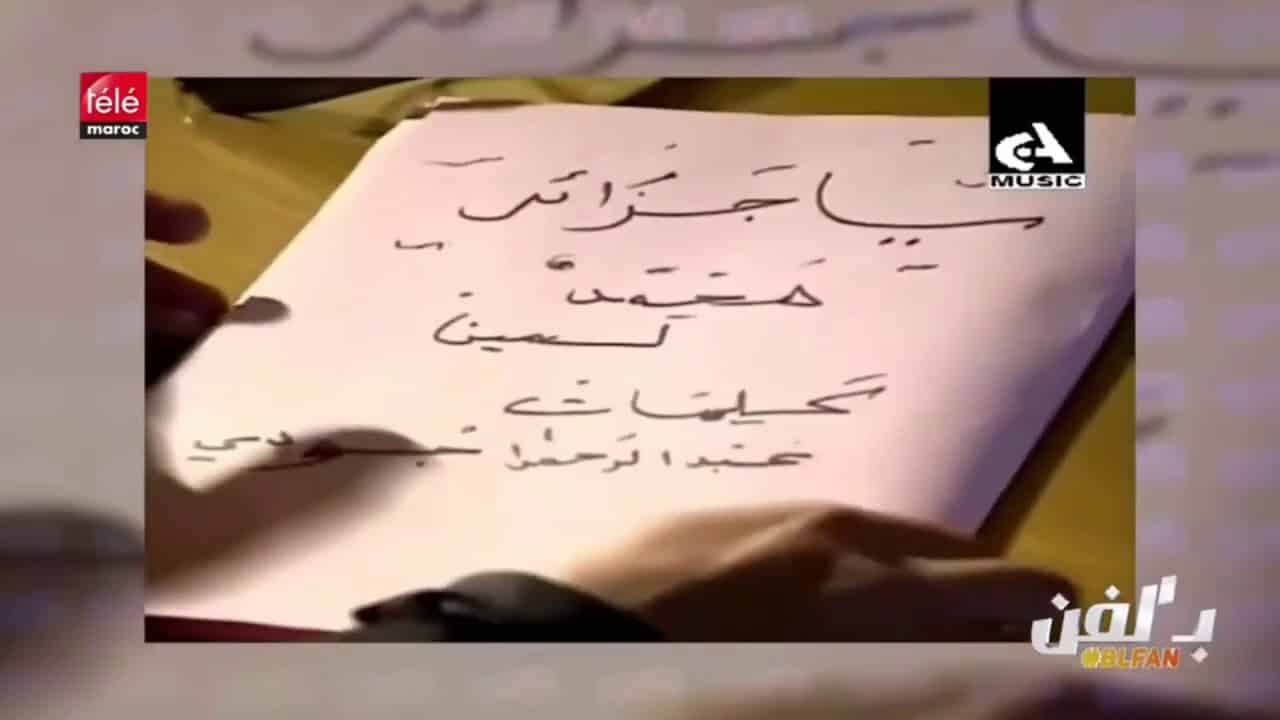 télé
maroc
MUSIC
يَا جَزَائر
محمد
لمين
كلمات
عبد الرحمان جودي
بـلفن
#BLFAN